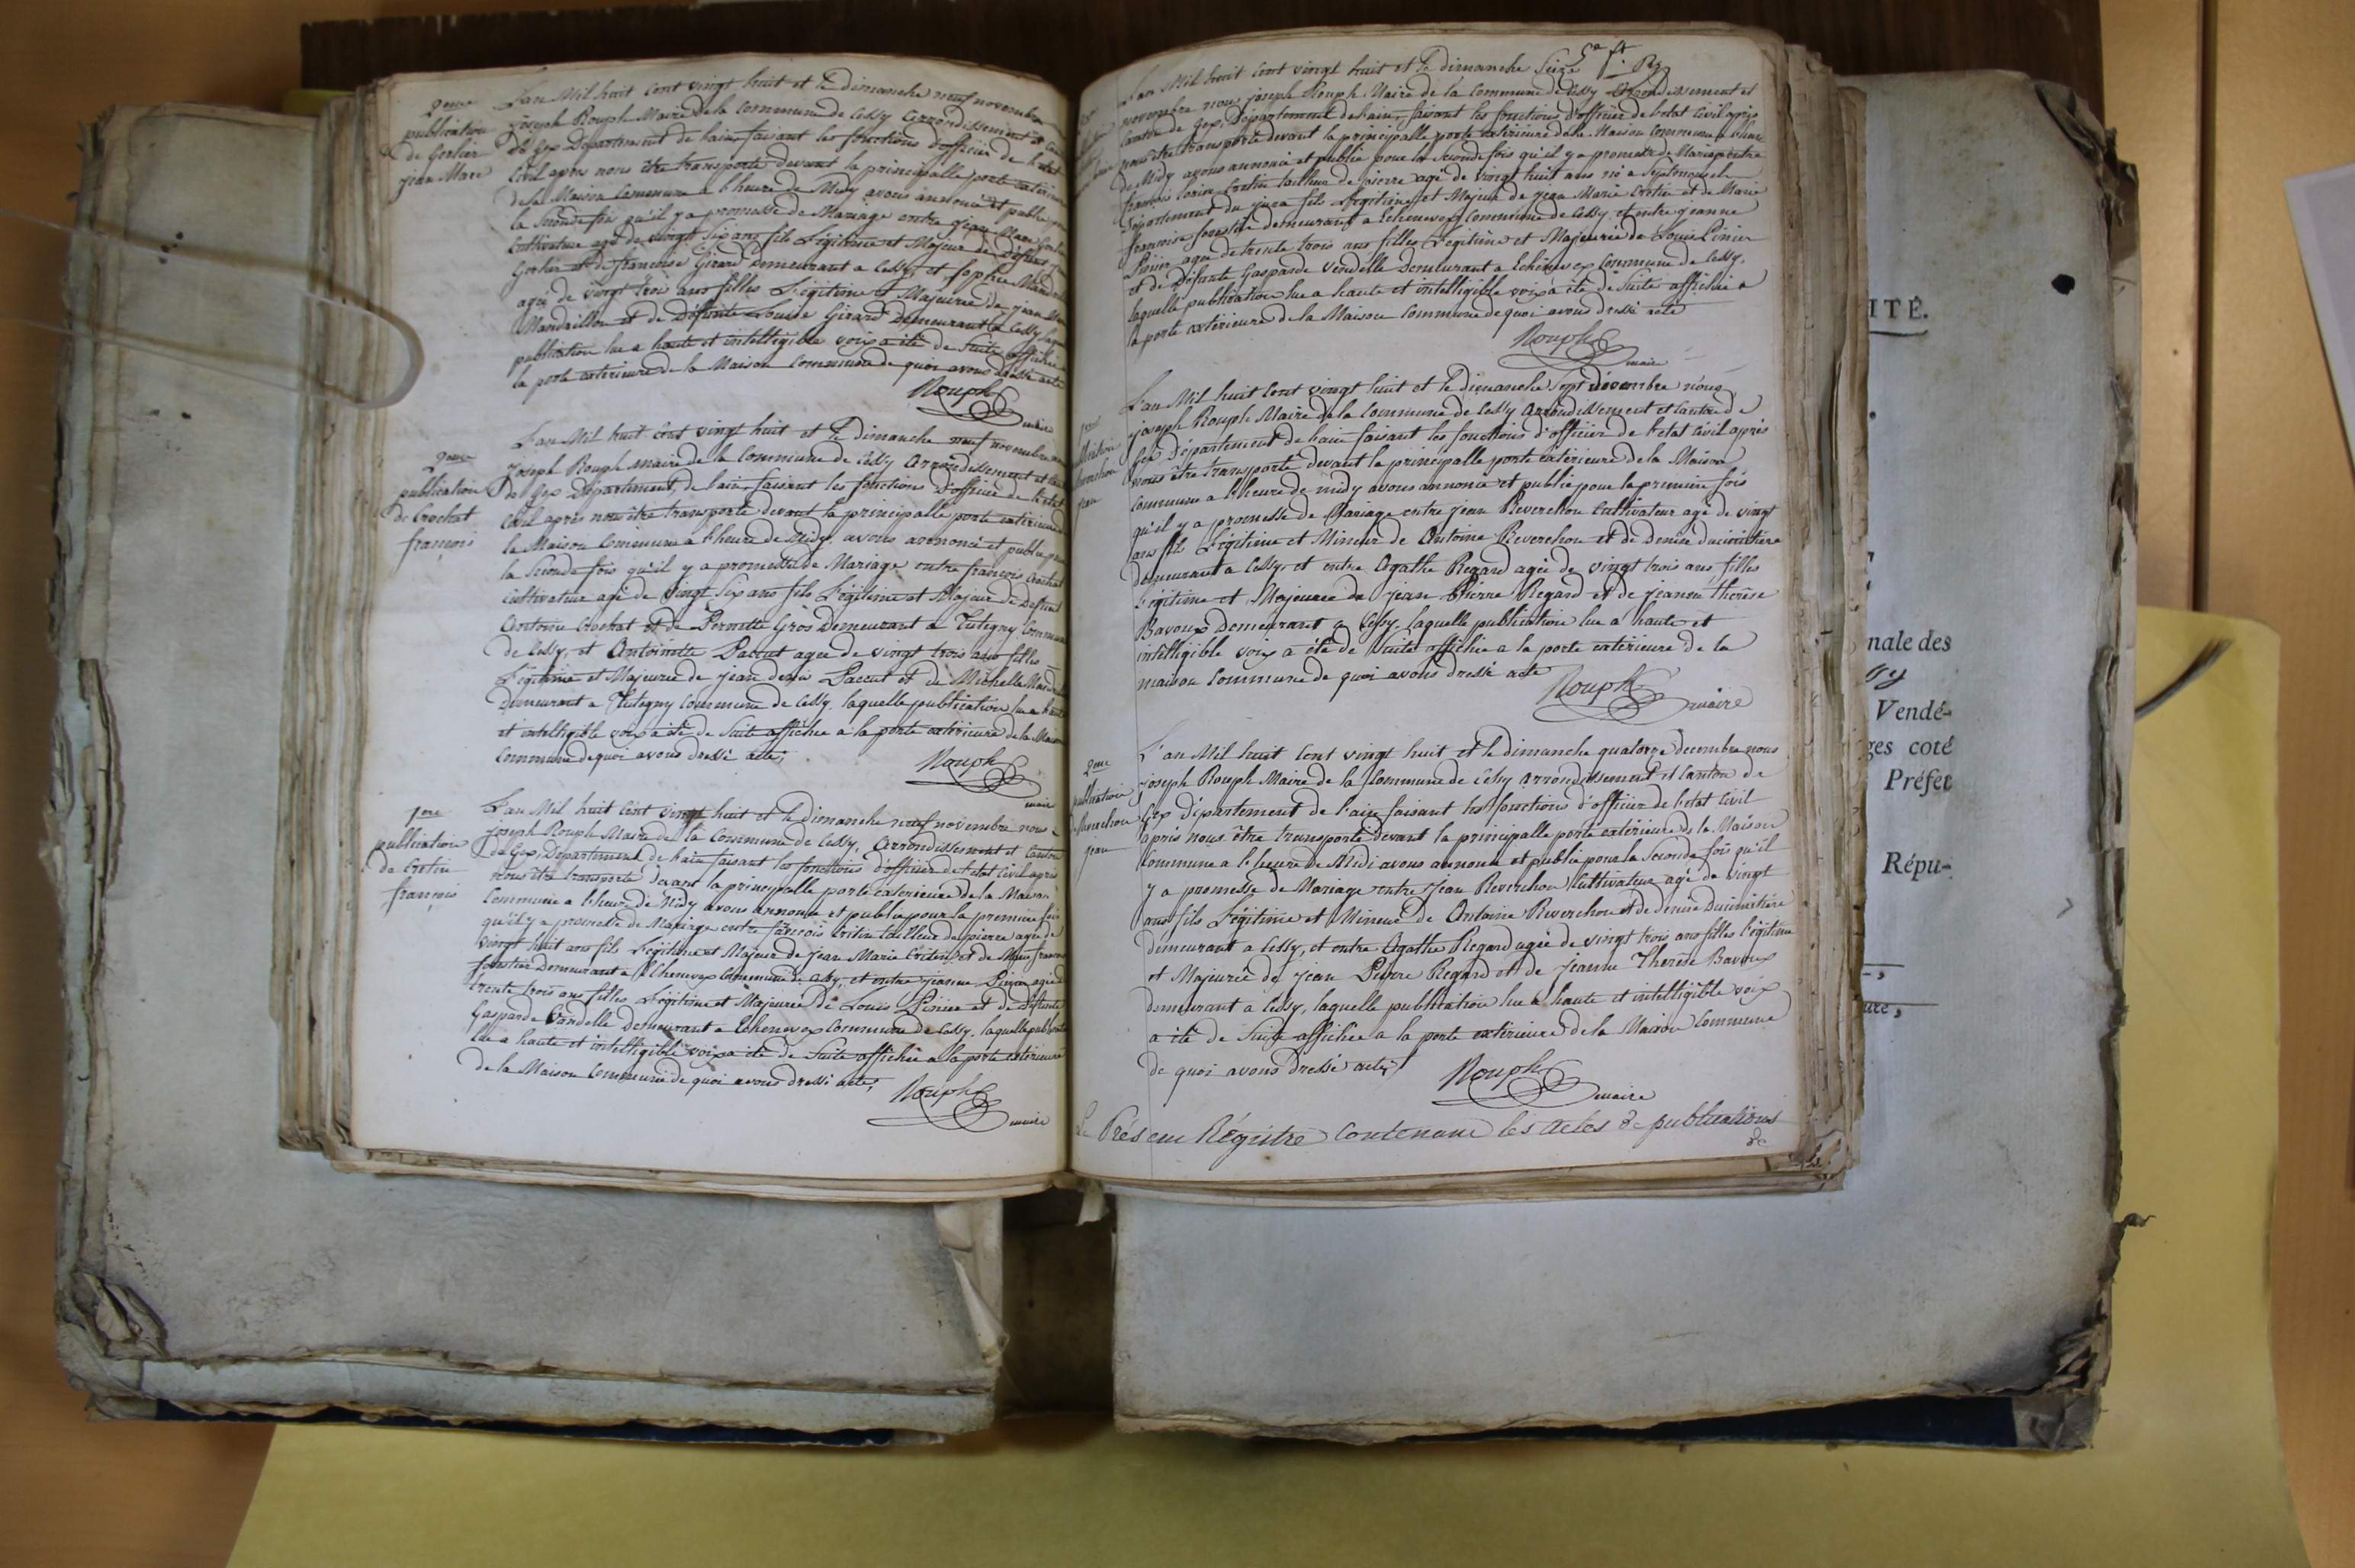 2eme
publication
de Gerlier
jean Marc
L'an Mil huit cent vingt huit et le dimanche neuf novembre
joseph Rouph Maire de la Commune de Cessy Arrondissement et
de Gex Departement de l'ain, faisant les fonctions d'officier de l'etat
Civil apres nous être transporté devant la principalle porte exterieure
de la Maison Commune a l'heure de Midy avons annoncé et publié
la seconde fois qu'il y a promesse de Mariage entre jean Marc
Cultivateur agé de vingt six ans fils Légitime et Majeur de défunt
Gerlier et de francoise Girard Demeurant a Cessy, et Sophie
agée de vingt trois ans filles Légitime et Majeurée de jean
Mandrillon et de Défunte Louise Girard Demeurant a Cessy
publication lue a haute et intelligible voix a été de Suite affichée
la porte exterieure de la Maison Commune de quoi avons dressé acte
Rouph
maire
2eme
publication
de Crochat
françois
L'an Mil huit Cent vingt huit et le dimanche neuf novembre
Joseph Rouph maire de la Commune de Cessy Arrondissement et
de Gex Département, de l'ain, faisant les fonctions d'officier de l'etat
Civil après nous être transporté devant la principalle porte exterieure
la Maison Commune a l'heure de Midy, avons annoncé et publié
la Seconde fois qu'il y a promesse de Mariage entre francois Crochat
Cultivateur agé de Vingt Six ans fils Légitime et Majeur de Defunt
Antoine Crochat et de Pernette Gros Demeurant a Tutegny
de Cessy, et Antoinette Paccut agée de vingt trois ans filles
Légitime et Majeurée de jean denis Paccut et de Michelle
Demeurant a Tutegny Commune de Cessy, laquelle publication lue a haute
et intelligible voix a été de Suite affichée a la porte exterieure de la Maison
Commune de quoi avons dressé acte;
Rouph
maire
1ere
publication
de Cretin
françois
L'an Mil huit Cent vingt huit et le dimanche neuf novembre nous
joseph Rouph Maire de la Commune de Cessy, Arrondissement et Canton
de Gex, Département de l'ain faisant les fonctions d'officier de l'etat Civil après
nous être transporté devant la principalle porte exterieure de la Maison
Commune a l'heure de Midy avons annoncé et publié pour la premiere fois
qu'il y a promesse de Mariage entre françois Cretin tailleur de pierre agé de
vingt huit ans fils Légitime et Majeur de jean Marie Cretin et de Marie
Demeurant a Echenevex Commune de Cessy, et entre jeanne Pinier agée
trente trois ans filles Légitime et Majeurée de Louis Pinier et de Defunte
Gasparde Vandelle Demeurant a Echenevex Commune de Cessy, laquelle
lue a haute et intelligible voix a été de Suite affichée a la porte exterieure
de la Maison Commune de quoi avons dressé acte;
Rouph
maire
L'an Mil huit Cent vingt huit et le dimanche Seize
novembre nous joseph Rouph Maire de la Commune de Cessy Arrondissement et
Canton de Gex, Département de l'ain, faisant les fonctions d'officier de l'etat Civil après
nous être transporté devant la principalle porte exterieure de la Maison Commune a l'heure
de Midy avons annoncé et publié pour la Seconde fois qu'il y a promesse de Mariage entre
francois Cretin tailleur de pierre agé de vingt huit ans né a Septmoncel
Département du jura fils Légitime et Majeur de jean Marie Cretin et de Marie
francoise demeurant a Echenevex Commune de Cessy, et entre jeanne
Pinier agée de trente trois ans filles Légitime et Majeurée de Louis Pinier
et de Défunte Gasparde Vendelle Demeurant a Echenevex Commune de Cessy,
laquelle publication lue a haute et intelligible voix a été de Suite affichée a
la porte exterieure de la Maison Commune de quoi avons dressé acte
Rouph
maire
jean
L'an Mil huit Cent vingt huit et le dimanche Sept décembre nous
joseph Rouph Maire de la Commune de Cessy Arrondissement et Canton de
Gex Département de l'ain faisant les fonctions d'officier de l'etat Civil après
nous être transporté devant la principalle porte exterieure de la Maison
Commune a l'heure de midy avons annoncé et publié pour la premiere fois
qu'il y a promesse de Mariage entre jean Reverchon Cultivateur agé de vingt
ans fils Légitime et Mineur de Antoine Reverchon et de denise Ducimetiere
demeurant a Cessy, et entre Agathe Regard agée de vingt trois ans, filles
Légitime et Majeurée de jean Pierre Regard et de jeanne thérèse
Bavoux Demeurant a Cessy, laquelle publication lue a haute et
intelligible voix a été de Suite affichée a la porte exterieure de la
maison Commune de quoi avons dressé acte
Rouph
maire
2eme
publication
de Reverchon
jean
L'an Mil huit Cent vingt huit et le dimanche quatorze decembre nous
joseph Rouph Maire de la Commune de Cessy Arrondissement et Canton de
Gex département de l'ain faisant les fonctions d'officier de l'etat Civil
après nous être transporté devant la principalle porte exterieure de la Maison
Commune a l'heure de Midi avons annoncé et publié pour la Seconde fois qu'il
y a promesse de Mariage entre jean Reverchon Cultivateur agé de vingt
ans fils Légitime et Mineur de Antoine Reverchon et de denise Ducimetiere
demeurant a Cessy, et entre Agathe Regard agée de vingt trois ans filles légitime
et Majeurée de jean Pierre Regard et de jeanne Therèse Bavoux
demeurant a Cessy, laquelle publication lue a haute et intelligible voix
a été de Suite affichée a la porte exterieure de la Maison Commune
de quoi avons dressé acte;
Rouph
maire
Le Présent Régistre contenant les actes de publications
de
ITÉ.
nale des
Vendé-
ges coté
Préfet
Répu-